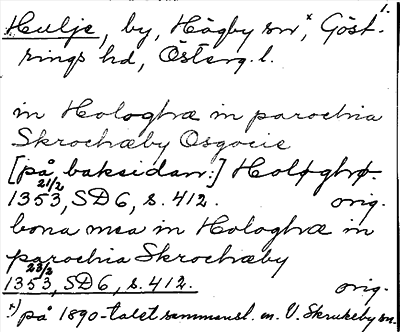 1.
Hulje, by, Högby sn*, Göst-
rings hd, Österg. l.
in Hologhæ in parochia
Skrochæby Osgocie
[på baksidan:] Hologhø.
21/2
1353, SD 6, s. 412. orig.
bona mea in Hologhæ in
parochia Skrochæby
23/2
1353, SD 6, s. 412. orig.
*) på 1890-talet sammansl. m. V. Skrukeby sn.